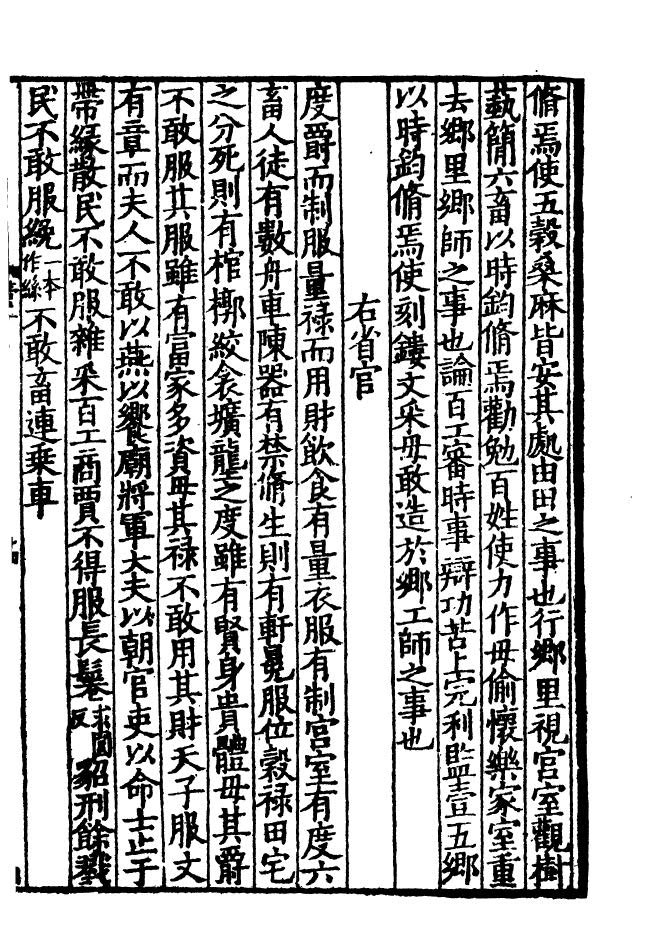 脩焉使五穀桑麻皆安其處由田之事也行鄉里視宫室觀樹
藝簡六畜以時鈞脩焉勸勉百姓使力作毋偷懷樂家室重
去鄉里鄉師之事也論百工審時事辯功苦上完利監壹五鄉
以時鈞脩焉使刻鏤文采毋敢造於鄉工師之事也
右省官
度爵而制服量禄而用財飲食有量衣服有制宫室有度六
畜人徒有數舟車陳器有禁脩生則有軒冕服位穀禄田宅
之分死則有棺槨絞衾壙龍之度雖有賢身貴體毋其爵
不敢服其服雖有富家多資毋其禄不敢用其財天子服文
有章而夫人不敢以燕以饗廟將軍大夫以朝官吏以命士止于
帶緣散民不敢服雜采百工商賈不得服長鬈求圓反貂刑餘戮
民不敢服絻一本作絲不敢畜連乗車